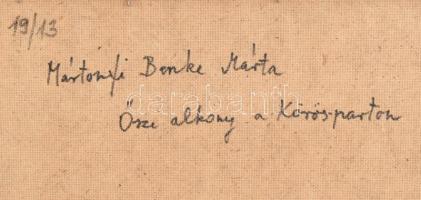 19/13
Mártonfi Benke Márta
darabanth
Őszi alkony a Körös-parton